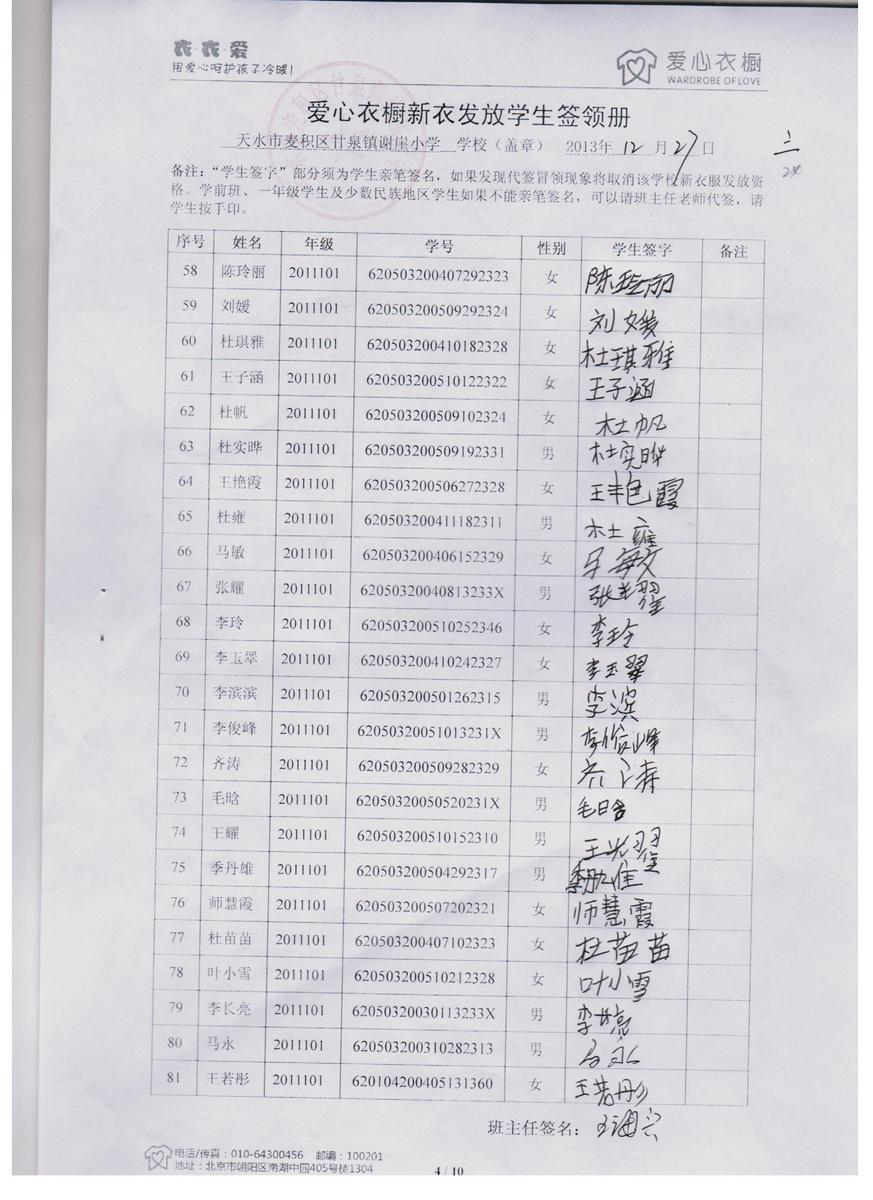 衣·衣·爱
用爱心呵护孩子冷暖!
爱心衣橱
WARDROBE OF LOVE
爱心衣橱新衣发放学生签领册
天水市麦积区甘泉镇谢崖小学 学校（盖章） 2013年 12 月 27 日
三
24
备注：“学生签字”部分须为学生亲笔签名，如果发现代签冒领现象将取消该学校新衣服发放资
格。学前班、一年级学生及少数民族地区学生如果不能亲笔签名，可以请班主任老师代签，请
学生按手印。
序号 姓名 年级 学号 性别 学生签字 备注
58 陈玲丽 2011101 620503200407292323 女 陈玲丽
59 刘媛 2011101 620503200509292324 女 刘媛
60 杜琪雅 2011101 620503200410182328 女 杜琪雅
61 王子涵 2011101 620503200510122322 女 王子涵
62 杜帆 2011101 620503200509102324 女 杜帆
63 杜实晔 2011101 620503200509192331 男 杜实晔
64 王艳霞 2011101 620503200506272328 女 王艳霞
65 杜雍 2011101 620503200411182311 男 杜雍
66 马敏 2011101 620503200406152329 女 马敏
67 张耀 2011101 62050320040813233X 男 张耀
68 李玲 2011101 620503200510252346 女 李玲
69 李玉翠 2011101 620503200410242327 女 李玉翠
70 李滨滨 2011101 620503200501262315 男 李滨
71 李俊峰 2011101 62050320051013231X 男 李俊峰
72 齐涛 2011101 620503200509282329 女 齐涛
73 毛晗 2011101 62050320050520231X 男 毛晗
74 王耀 2011101 620503200510152310 男 王耀
75 季丹雄 2011101 620503200504292317 男 季丹雄
76 师慧霞 2011101 620503200507202321 女 师慧霞
77 杜苗苗 2011101 620503200407102323 女 杜苗苗
78 叶小雪 2011101 620503200510212328 女 叶小雪
79 李长亮 2011101 62050320030113233X 男 李长亮
80 马永 2011101 620503200310282313 男 马永
81 王若彤 2011101 620104200405131360 女 王若彤
班主任签名：
电话/传真：010-64300456 邮编：100201
地址：北京市朝阳区南湖中园405号楼1304
4 / 10